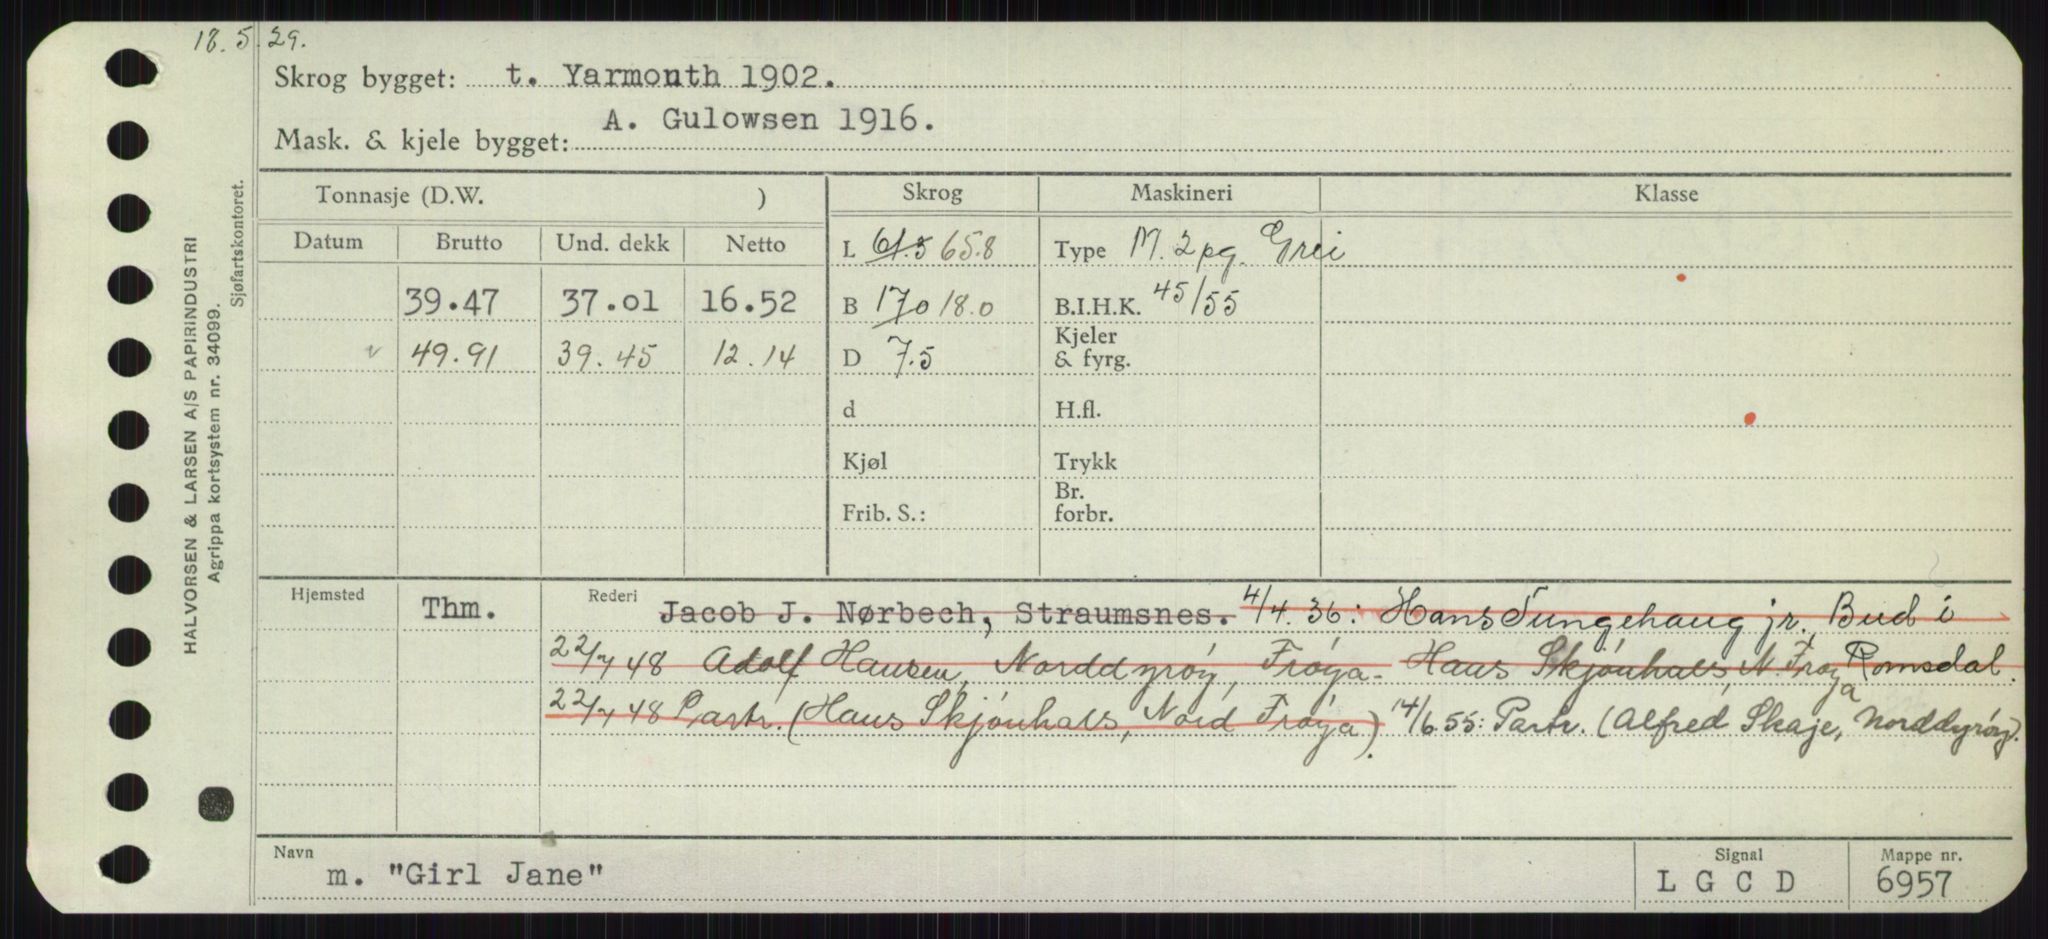 18.5.29.
Skrog bygget: t. Yarmonth 1902.
Mask. & kjele bygget: A. Gulowsen 1916.
HALVORSEN & LARSEN A/S PAPIRINDUSTRI
Agrippa kortsystem nr. 34099.
Sjøfartskontoret.
Tonnasje (D.W. ) Skrog Maskineri Klasse
Datum Brutto Und. dekk Netto L 61.5 65.8 Type M. 2 pg. Grei
39.47 37.01 16.52 B 17.0 18.0 B.I.H.K. 45/55
v 49.91 39.45 12.14 D 7.5 Kjeler & fyrg.
d H.fl.
Kjøl Trykk
Frib. S.: Br. forbr.
Hjemsted Thm. Rederi Jacob J. Nørbech, Straumsnes. 4/4.36: Hans Tungehaug jr. Bud i
22/7 48 Adolf Hansen, Norddyrøy, Frøya - Hans Skjønhals, N. Frøya Romsdal.
22/7 48 Partr. (Hans Skjønhals, Nord Frøya). 14/6.55: Partr. (Alfred Skaje, Norddyrøy).
Navn m. "Girl Jane" Signal LGCD Mappe nr. 6957